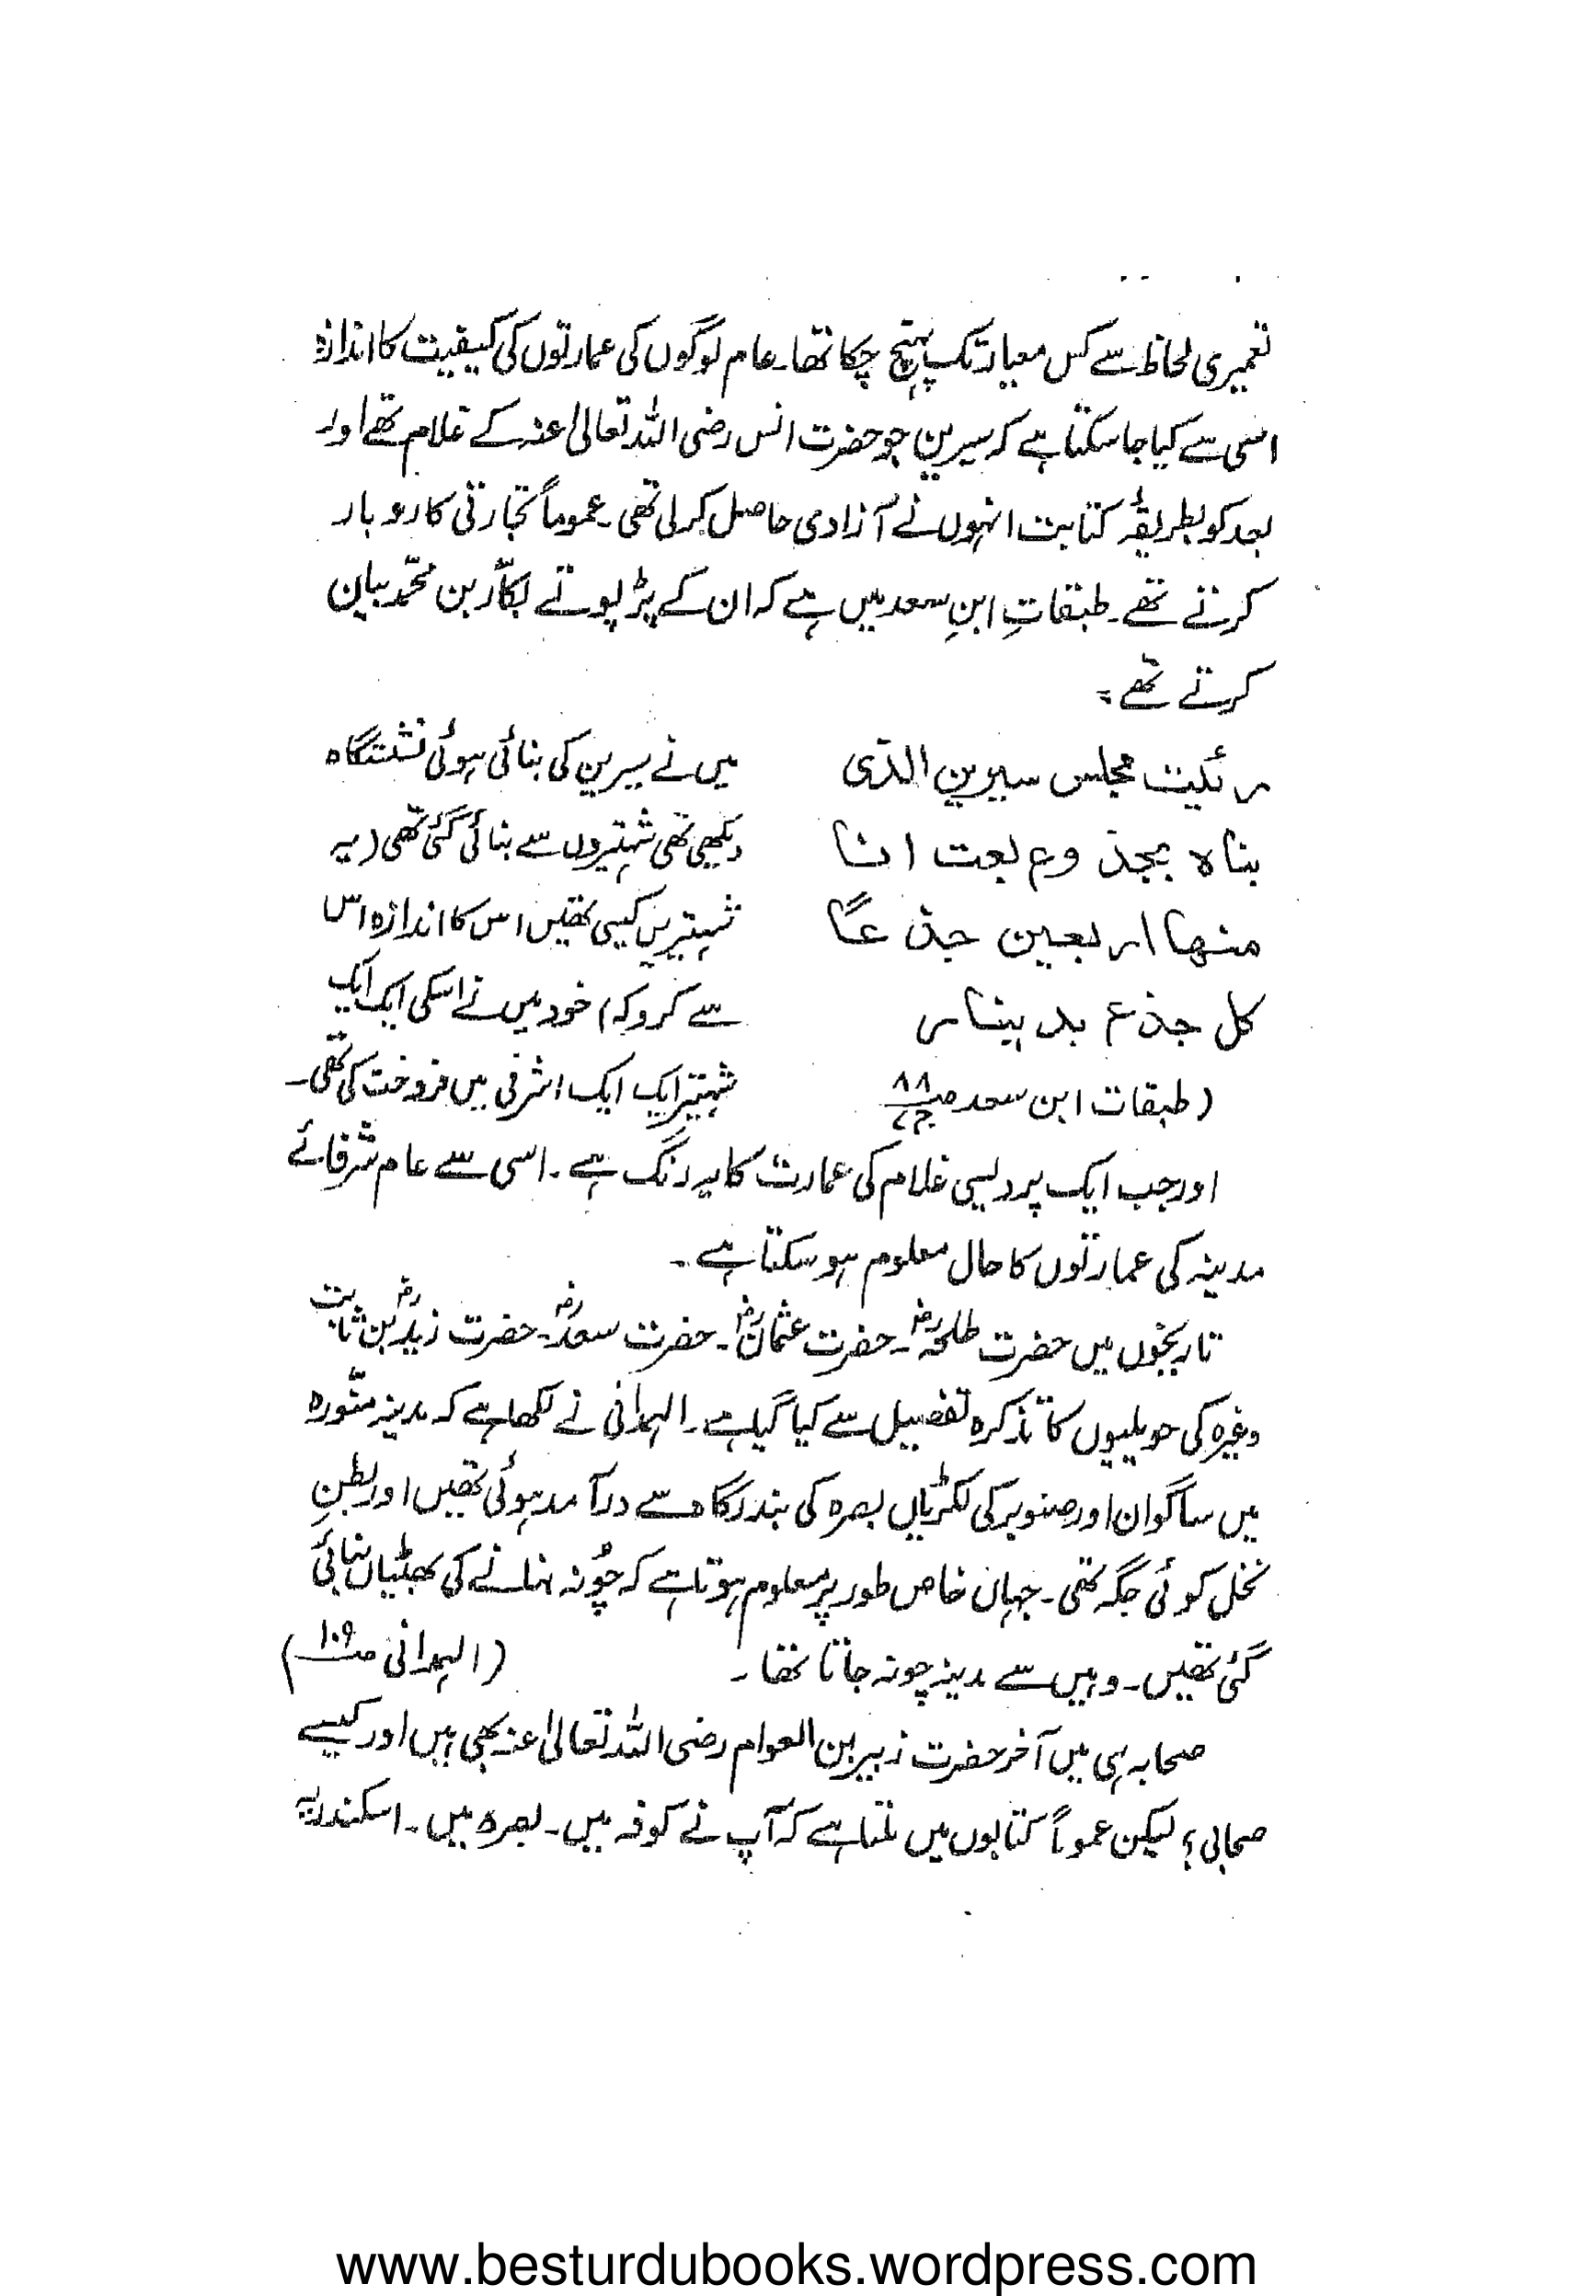 تعمیری لحاظ سے کس معیار تک پہنچ چکا تھا۔ عام لوگوں کی عمارتوں کی کیفیت کا اندازہ
اسی سے کیا جا سکتا ہے کہ سیرین جو حضرت انس رضی اللہ تعالیٰ عنہ کے غلام تھے اور
بعد کو بطریقۂ کتابت انہوں نے آزادی حاصل کر لی تھی۔ عموماً تجارتی کاروبار
کرتے تھے۔ طبقاتِ ابنِ سعد میں ہے کہ ان کے پڑپوتے بکّار بن محمّد بیان
کرتے تھے۔
رئیت مجلس سیرین الذی
بناہ بجذوع بعت انا
منھا اربعین جذعاً
کل جذع بدینار
(طبقات ابن سعد صـ ۸۸ ج ۷
میں نے سیرین کی بنائی ہوئی نشستگاہ
دیکھی تھی شہتیروں سے بنائی گئی تھی (یہ
شہتیریں کیسی تھیں اس کا اندازہ اس
سے کرو کہ) خود میں نے اسکی ایک ایک
شہتیر ایک ایک اشرفی میں فروخت کی تھی۔
اور جب ایک پردیسی غلام کی عمارت کا یہ رنگ ہے۔ اسی سے عام شرفائے
مدینہ کی عمارتوں کا حال معلوم ہو سکتا ہے۔
تاریخوں میں حضرت طلحہؓ۔ حضرت عثمانؓ۔ حضرت سعدؓ۔ حضرت زیدؓ بن ثابت
وغیرہ کی حویلیوں کا تذکرہ تفصیل سے کیا گیا ہے۔ الہمدانی نے لکھا ہے کہ مدینہ منّورہ
میں ساگوان اور صنوبر کی لکڑیاں بصرہ کی بندرگاہ سے درآمد ہوئی تھیں اور بطنِ
نخل کوئی جگہ تھی۔ جہاں خاص طور پر معلوم ہوتا ہے کہ چُونہ بنانے کی بھٹیاں بنائی
گئی تھیں۔ وہیں سے مدینہ چونہ جاتا تھا۔ (الہمدانی صـ ۱۰۹)
صحابہ ہی میں آخر حضرت زبیر بن العوام رضی اللہ تعالیٰ عنہ بھی ہیں اور کیسے
صحابی؟ لیکن عموماً کتابوں میں ملتا ہے کہ آپ نے کوفہ میں۔ بصرہ میں۔ اسکندریہ
www.besturdubooks.wordpress.com